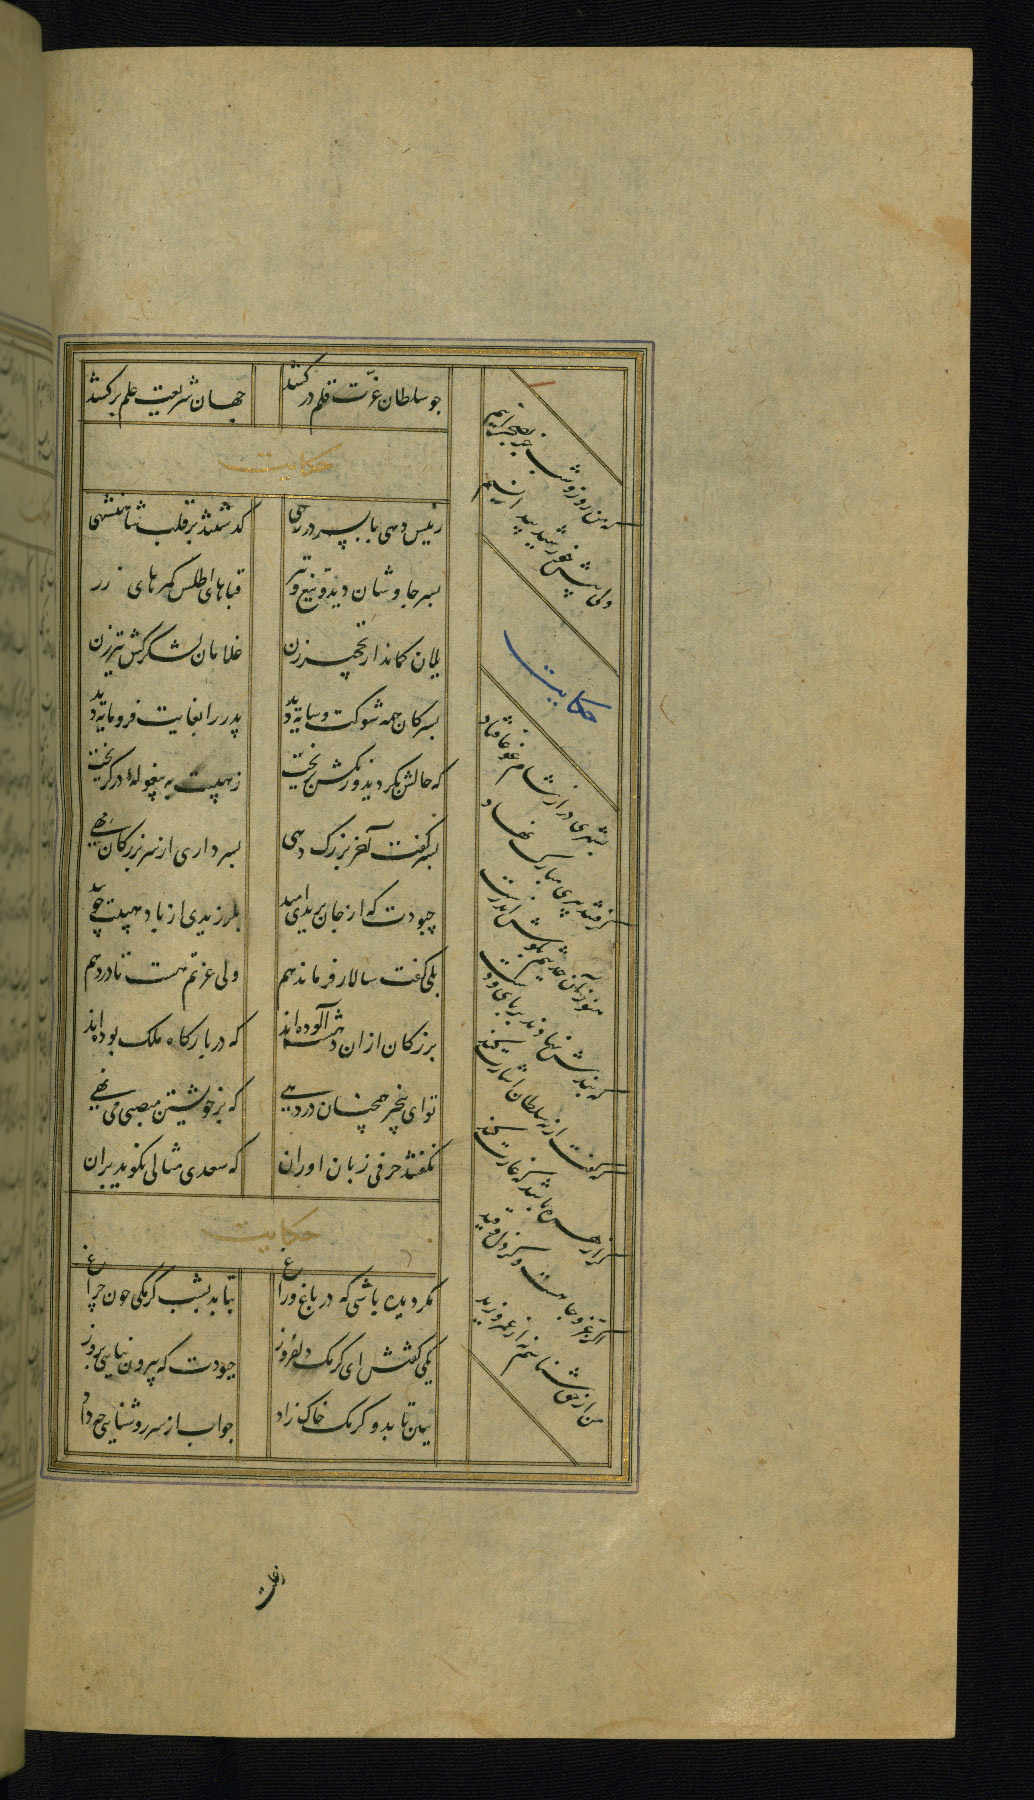 جو سلطان عزت قلم درکشد جهان شریعت علم برکشد
حکایت
رئیس دهی با پسر در رهی گذشتند بر قلب شاهنشهی
پسر جاوشان دید و تیغ و تبر قباهای اطلس کمرهای زر
یلان کماندار نخچیر زن غلامان لشکرکش تیرزن
پسر کان همه شوکت و پایه دید پدر را بغایت فرومایه دید
که حالش بگردید و رنگش بریخت ز هیبت به پیغوله در گریخت
پسر گفت آخر بزرگ دهی بسرداری از سر بزرگان مهی
چبودت که از جان بریدی امید بلرزیدی از باد هیبت چو بید
بلی گفت سالار فرماندهم ولی عزتم هست تا در دهم
بزرگان ازان دهشت آلوده اند که در بارگاه ملک بوده اند
تو ای بیخبر همچنان در دهی که بر خویشتن منصبی می نهی
نگفتند حرفی زبان اوران که سعدی مثالی نگوید بران
حکایت
مگر دیده باشی که در باغ و راغ بتابد بشب کرمکی جون چراغ
یکی گفتش ای کرمک دلفروز جبودت که بیرون نیایی بروز
ببین تابد و کرمک خاک زاد جواب از سر روشنایی چه داد
که من روز و شب جز بصحرا نیم
ولی پیش خورشید پیدا نیم
حکایت
بشهری در از شام غوغا فتاد
گرفتند پیری مبارک نهاد
هنوز آن حدیثم بگوش اندرست
که بندش نهادند بر پای و دست
که گفت ار نه سلطان اشارت کند
کرا زهره باشد که غارت کند
اگر عز و جاهست و گر ذل و قید
من از حق شناسم نه از عمرو و زید